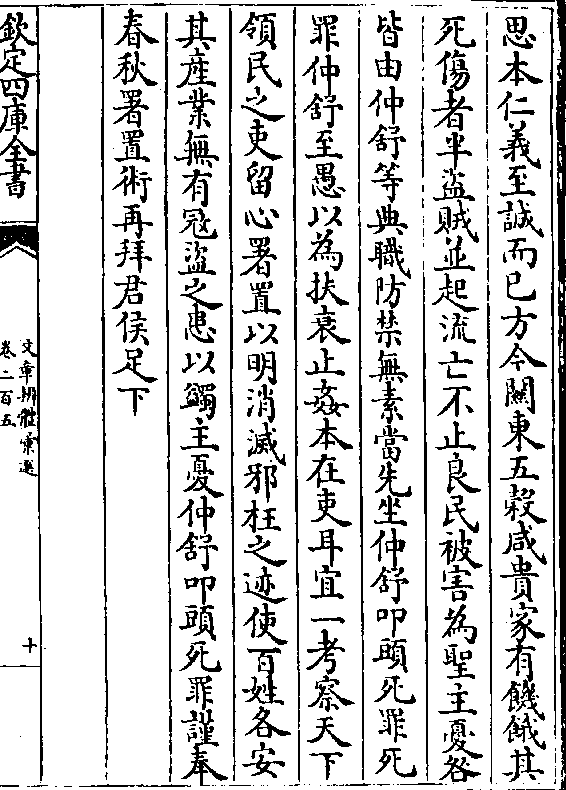 思本仁義至誠而已方今關東五穀咸貴家有饑餓其
死傷者半盜賊並起流亡不止良民被害為聖主憂咎
皆由仲舒等典職防禁無素當先坐仲舒叩頭死罪死
罪仲舒至愚以為扶衰止姦本在吏耳宜一考察天下
領民之吏留心署置以明消滅邪枉之迹使百姓各安
其產業無有寇盜之患以蠲主憂仲舒叩頭死罪謹奉
春秋署置術再拜君侯足下
欽定四庫全書
文章辨體彙選
卷二百五
十